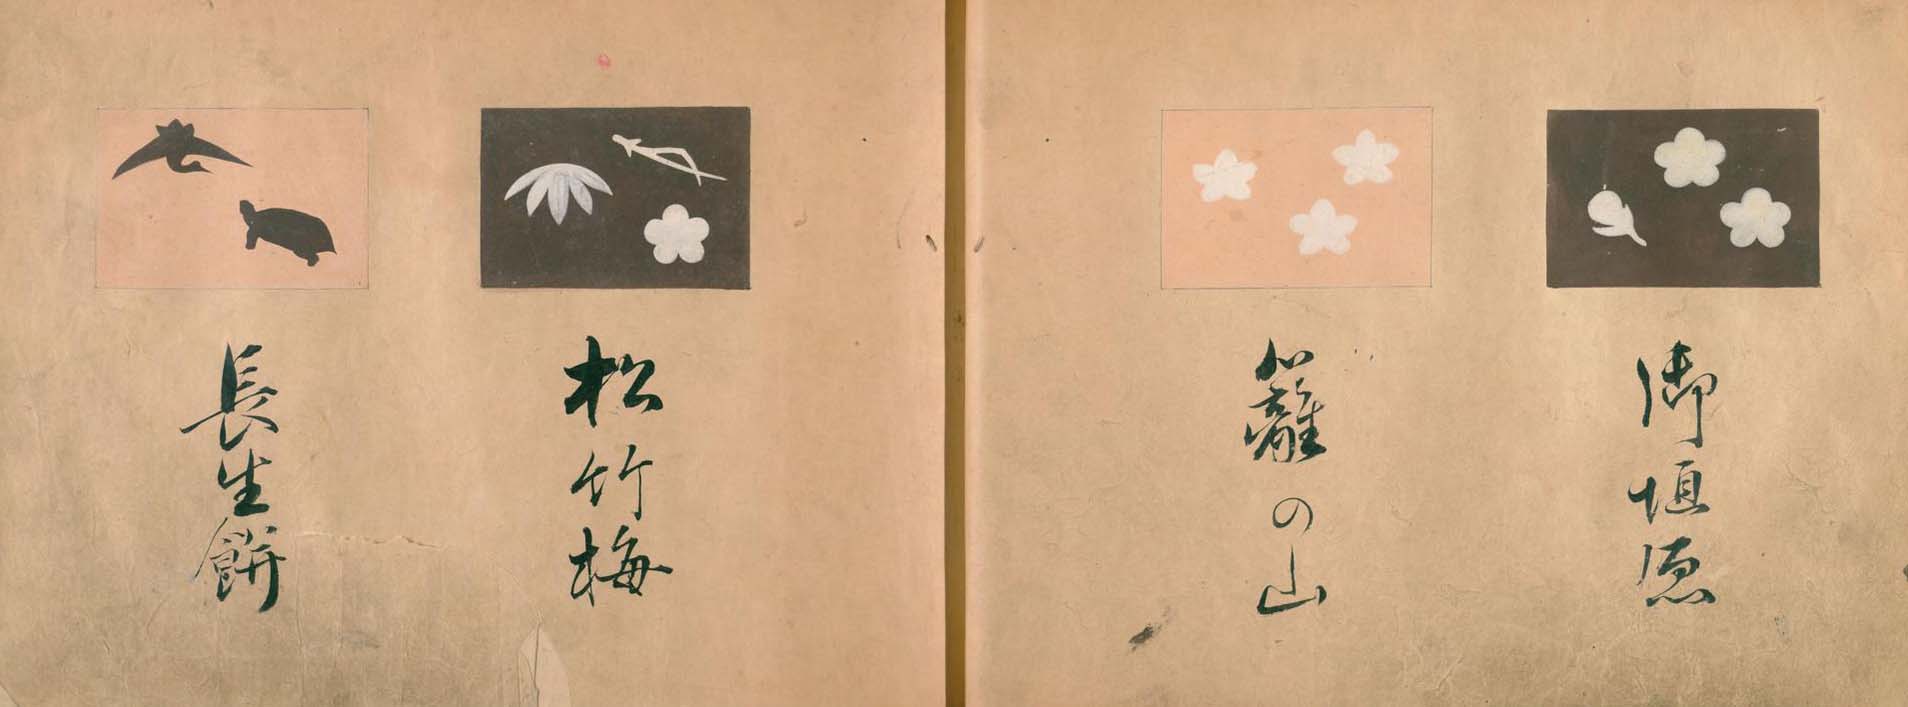 御垣原
籬の山
松竹梅
長生餅